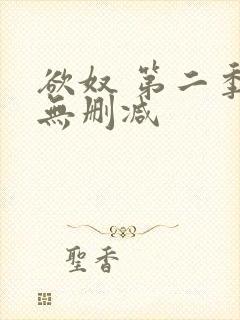 欲奴 第二季
無刪减
聖香